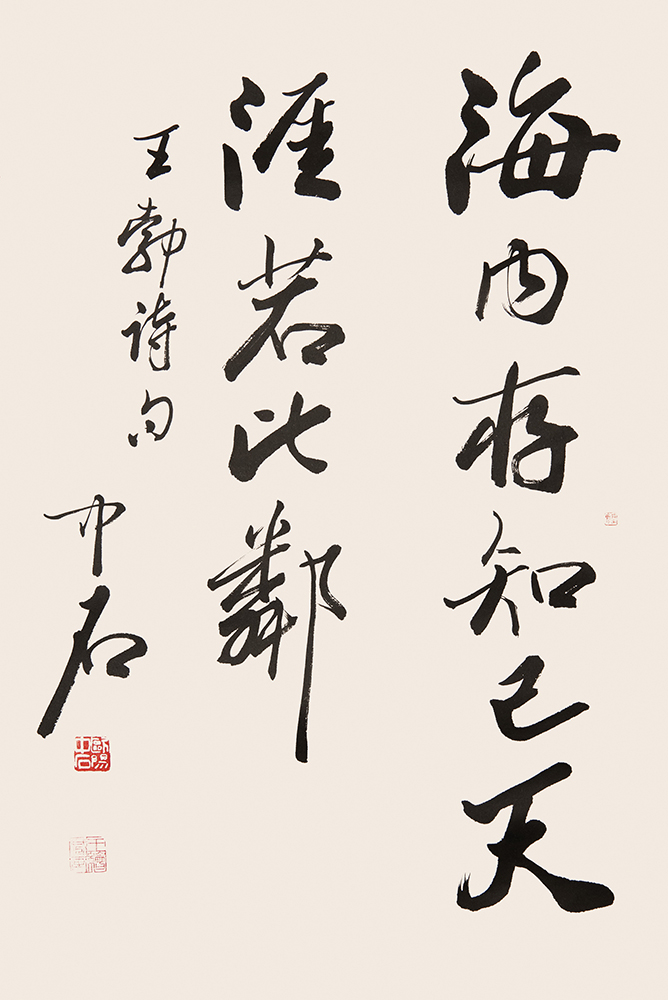 海内存知己天
涯若比鄰
王勃詩句
中石
歐陽
中石